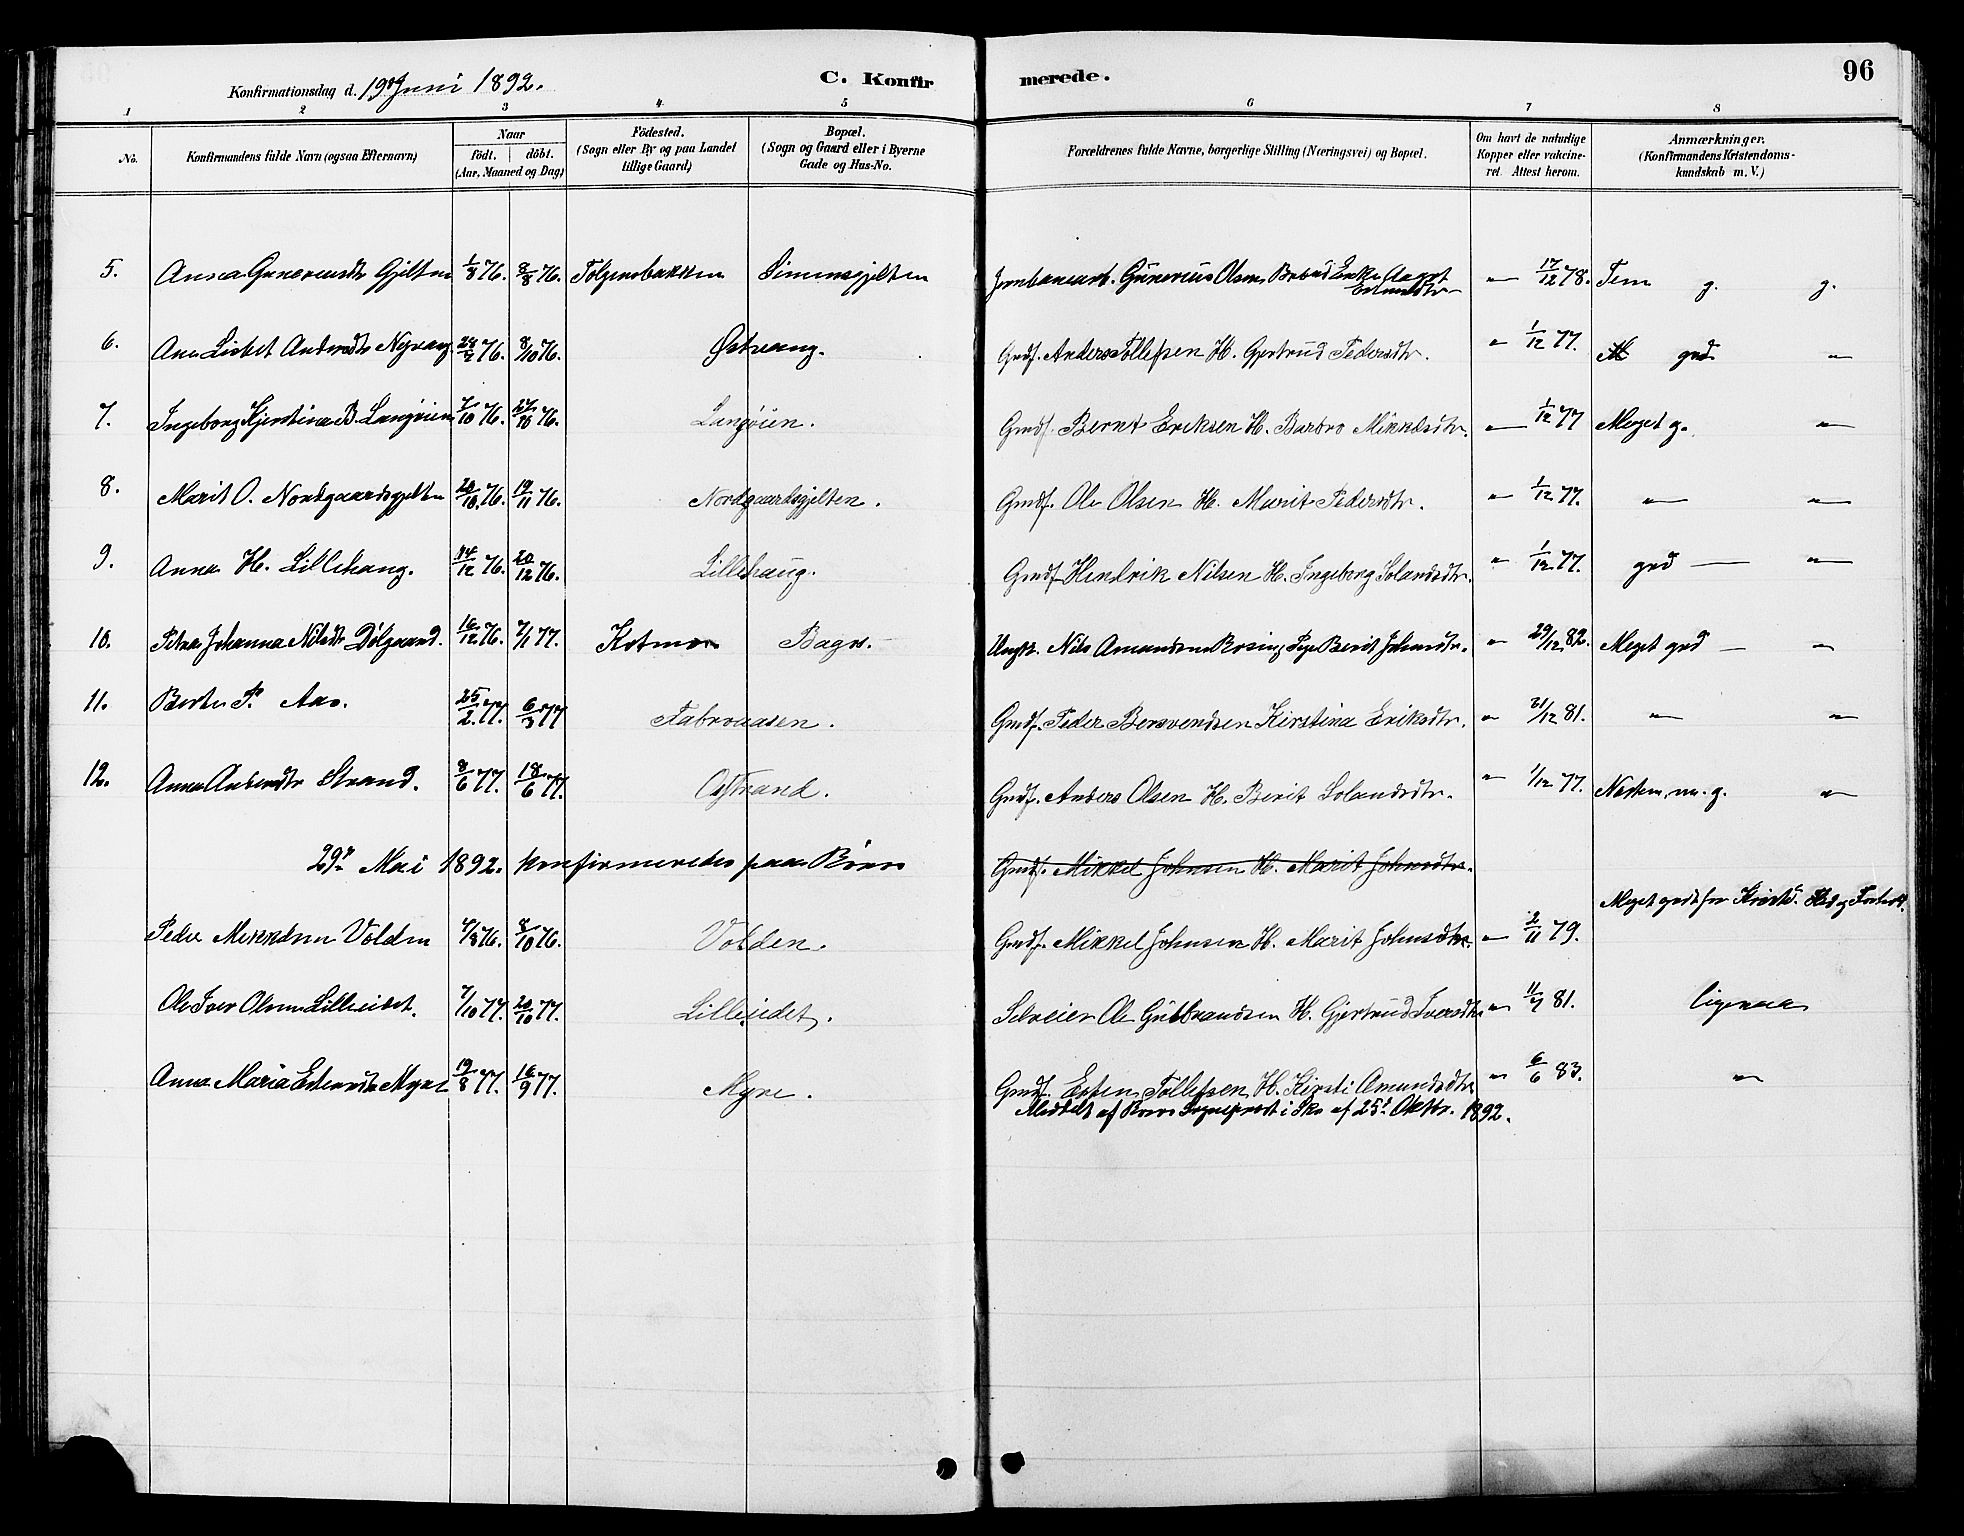 Konfirmationsdag d. 19de Juni 1892. C. Konfirmerede. 96
1 2 3 4 5 6 7 8
No. Konfirmandens fulde Navn (ogsaa Efternavn) Naar födt. döbt. (Aar, Maaned og Dag) Födested. (Sogn eller By og paa Landet tillige Gaard) Bopæl. (Sogn og Gaard eller i Byerne Gade og Hus-No. Forældrenes fulde Navne, borgerlige Stilling (Næringsvei) og Bopæl. Om havt de naturlige Kopper eller vakcineret. Attest herom. Anmærkninger. (Konfirmandens Kristendomskundskab m. V.)
5. Gjelten 1/8 76. 8/8 76. Tolgensbakken Simensgjelten Gunerius Olsen Enke Aagot " 17/12 78. g. g.
6. Ane Lisbet Andersdtr Nyvang 76. 8/10 76. Østvang. Gmdf. Anders Tollefsen H. Gjertrud Pedersdtr. " 1/12 77. M god "
7. Ingeborg Kjerstina B. Langøien 7/10 76. 76. Langøien. Gmdf. Bernt Eriksen H. Barbro Mikkelsdtr. " 1/12 77 Meget g. "
8. Marit O. Nordgaardsgjelten 20/10 76. 19/11 76. Nordgaardsgjelten. Gmdf. Ole Olsen H. Marit Pedersdtr. " 1/12 77. " "
9. Anna H. Lillehaug. 14/12 76. 20/12 76. Lillehaug. Gmdf. Hendrik Nilsen H. Ingeborg Jolandsdtr. " 1/12 77. god "
10. Petra Johanna Nilsdtr Dølgaard. 16/12 76. 7/1 77. Kotmo Nils Amundsen Berit Johnsdtr. " 29/12 82. Meget god "
11. P. Aas. 25/2 77. 6/3 77 Gmdf. Peder Bersvendsen Kirstina Eriksdtr. " 21/12 81. " "
12. Anna Andersdtr Strand. 8/6 77. 18/6 77. Osstrand. Gmdf. Anders Olsen H. Berit Jolandsdtr. " 1/12 77. Næsten m. g. "
29de Mai 1892. konfirmeredes paa Röros Gmdf. Mikkel Johnsen H. Marit Johnsdtr.
Peder Mikkelsen Volden 76. 8/10 76. Volden. Gmdf. Mikkel Johnsen H. Marit Johnsdtr. " 2/11 79. Meget godt for
Ole Iver Olsen Lilleeidet. 7/10 77. 20/10 77. Lilleeidet. Selveier Ole Gulbrandsen H. Gjertrud Iversdtr " 11/7 81. ligesaa
Anna Maria Estensdtr Myre 19/8 77. 16/9 77. Myre. Gmdf. Esten Tollefsen H. Kirsti Amundsdtr " 6/6 83. "
Meddelt af Röros Sogneprest i Skr. af 25de Oktbr. 1892.